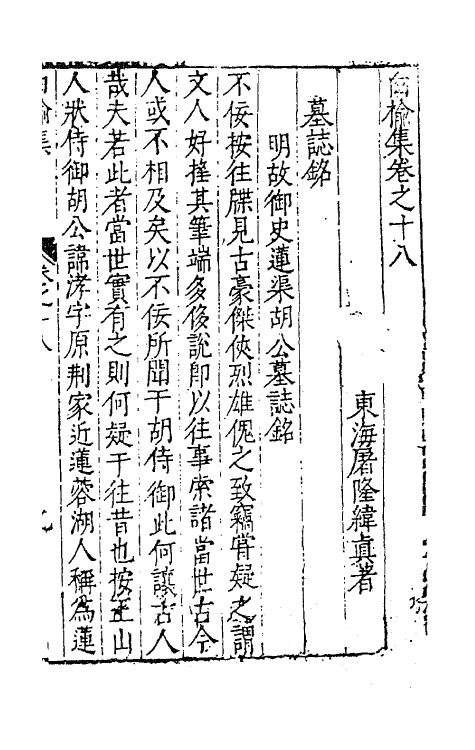 白榆集卷之十八
東海屠隆緯真著
墓誌銘
明故御史蓮渠胡公墓誌銘
不佞按往牒見古豪傑俠烈雄傀之致竊甞疑之謂
文人好摧其筆端多侈說即以往事索諸當世古今
人或不相及矣以不佞所聞于胡侍御此何讓古人
哉夫若此者當世實有之則何疑于往昔也按王山
人狀侍御胡公諱涍字原荆家近蓮蓉湖人稱為蓮
白榆集
卷之十八